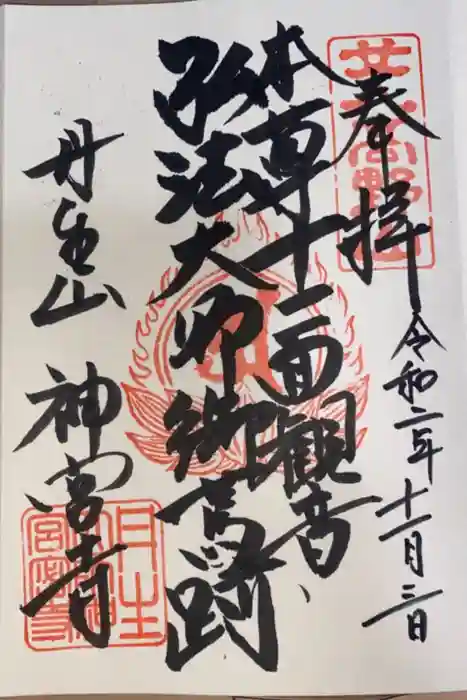 奉拝
令和二年十一月三日
本尊十一面観音
弘法大師御霊跡
丹生山 神宮寺
丹生山神宮寺